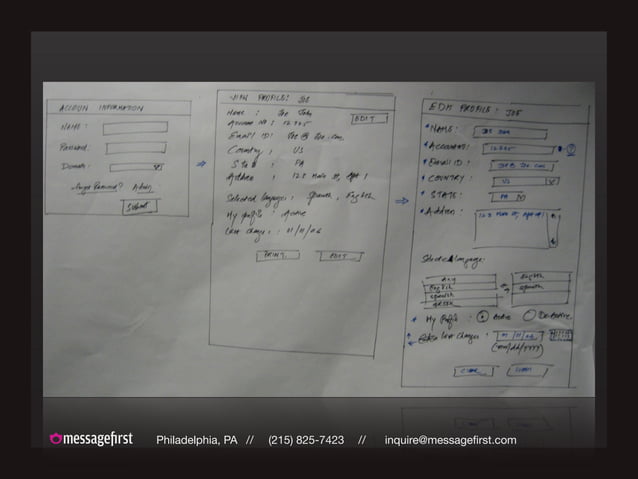 ACCOUN INFORMATION
NAME :
Password :
Domain :
Password? Admin
Submit
VIEW PROFILE: JOE
Name : Joe
Account No : 12345
EDIT
Email ID: Joe@Joe.com,
Country : US
State : PA
Address : 123 Main St, Apt 1
Selected languages : Spanish, English
My profile : Active
Last change : 11/11/06
PRINT
EDIT
EDIT PROFILE : JOE
* NAME :
* Account : 12345 * ?
* Email ID : Joe@Joe.com
* COUNTRY : US
* STATE : PA
* Address : 123 Main St, Apt #1
Selected language:
English English
Spanish Spanish
* My profile : Active DeActive
Last Change : 11/11/06
(mm/dd/yyyy)
messagefirst Philadelphia, PA // (215) 825-7423 // inquire@messagefirst.com